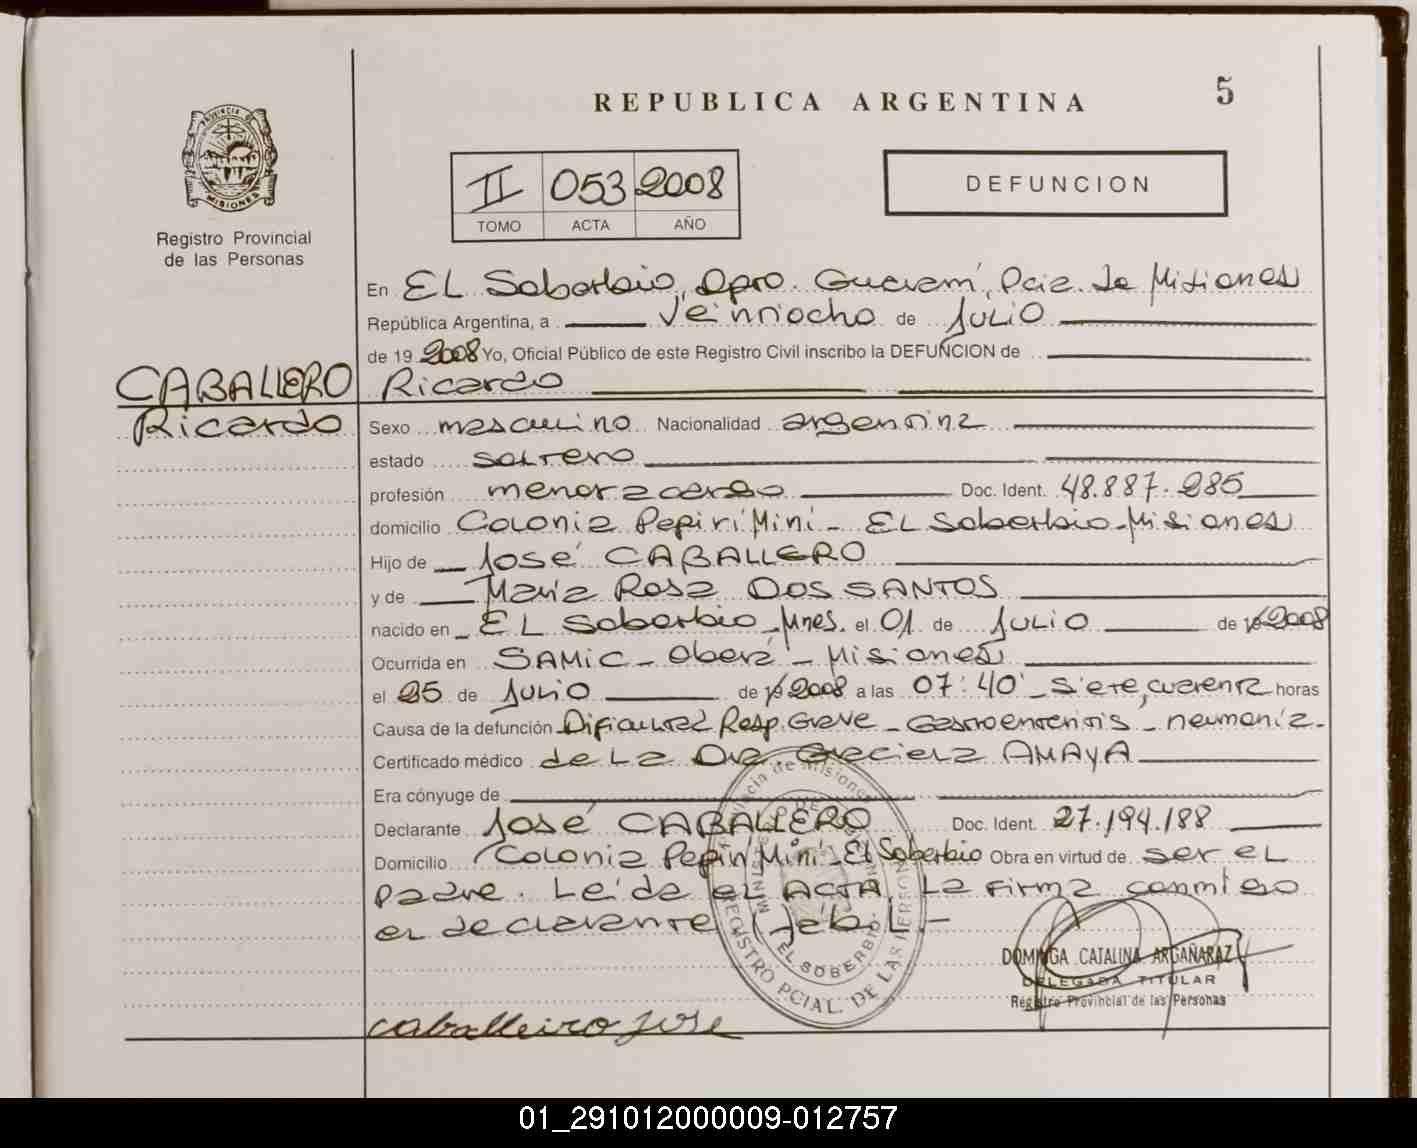 5
REPUBLICA ARGENTINA
PROVINCIA DE MISIONES
Registro Provincial
de las Personas
II 053 2008
TOMO ACTA AÑO
DEFUNCION
En EL Soberbio, Dpto. Guaraní, Pcia. de Misiones
República Argentina, a Veintiocho de JULIO
de 19 2008 Yo, Oficial Público de este Registro Civil inscribo la DEFUNCION de
CABALLERO Ricardo
Ricardo
Sexo masculino Nacionalidad argentina
estado soltero
profesión menor a cargo Doc. Ident. 48.887.285
domicilio Colonia Pepirí Miní - EL Soberbio - Misiones
Hijo de José CABALLERO
y de María Rosa DOS SANTOS
nacido en EL Soberbio - Mnes. el 01 de JULIO de 2008
Ocurrida en SAMIC - Oberá - Misiones
el 25 de JULIO de 2008 a las 07:40' - siete, cuarenta horas
Causa de la defunción Dificultad Resp. Grave - Gastroenteritis - neumonía.
Certificado médico de La Dra. Graciela AMAYA
Era cónyuge de
Declarante José CABALLERO Doc. Ident. 27.194.188
Domicilio Colonia Pepirí Miní - El Soberbio Obra en virtud de ser el
padre. Leída el ACTA, La firma conmigo
el declarante
Provincia de Misiones
REGISTRO PCIAL. DE LAS PERSONAS
EL SOBERBIO
DOMINGA CATALINA ARGAÑARAZ
DELEGADA TITULAR
Registro Provincial de las Personas
caballeiro jose
01_291012000009-012757